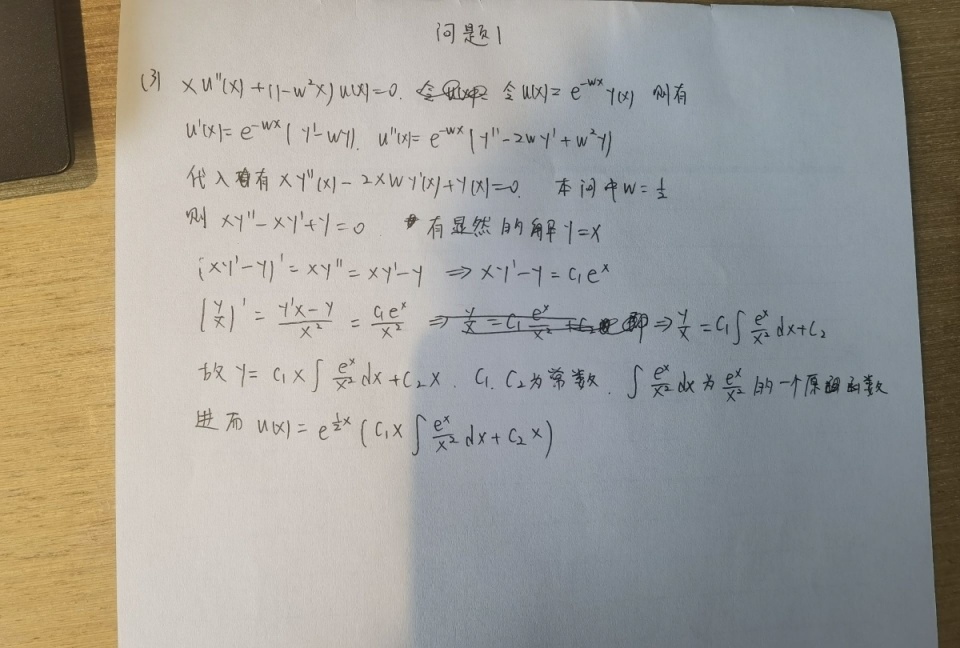 问题1
(3) xu''(x)+(1-w²x)u(x)=0. 令u(x)=e^{-wx}y(x) 则有
u'(x)=e^{-wx}(y'-wy). u''(x)=e^{-wx}(y''-2wy'+w²y)
代入有 xy''(x)-2xwy'(x)+y(x)=0. 本问中w=1/2
则 xy''-xy'+y=0. 有显然的解y=x
(xy'-y)'=xy''=xy'-y ⇒ xy'-y=c₁e^x
(y/x)'=(y'x-y)/x²=c₁e^x/x² ⇒ y/x=c₁∫e^x/x² dx+c₂
故y=c₁x∫e^x/x² dx+c₂x. c₁.c₂为常数. ∫e^x/x² dx为e^x/x²的一个原函数
进而 u(x)=e^{½x}(c₁x∫e^x/x² dx+c₂x)